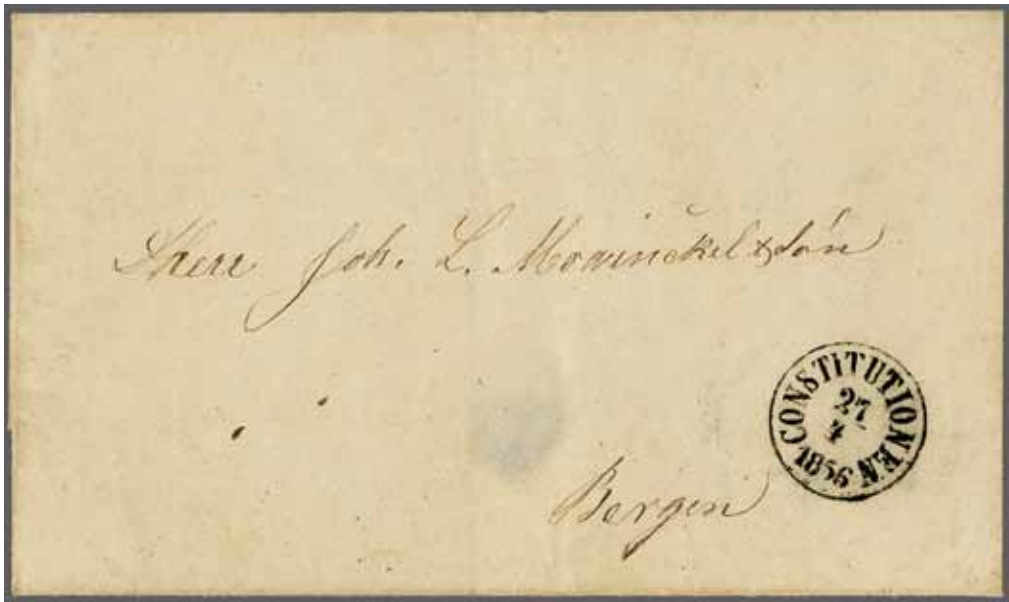 Herr Joh. L. Mowinckel & Sön
CONSTITUTIONEN
27
4
1856
Bergen